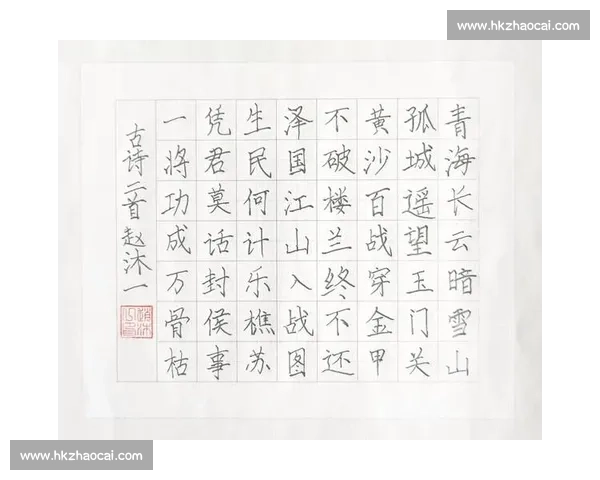 www.hkzhaocai.com
青海长云暗雪山
孤城遥望玉门关
黄沙百战穿金甲
不破楼兰终不还
泽国江山入战图
生民何计乐樵苏
凭君莫话封侯事
一将功成万骨枯
古诗二首赵沐一
www.hkzhaocai.com